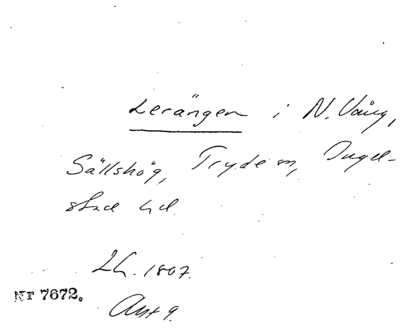 Lerängen i N. Vång,
Sällshög, Tryde sn, Ingel-
stad hd
Lh. 1807.
Nr 7672.
Akt 9.